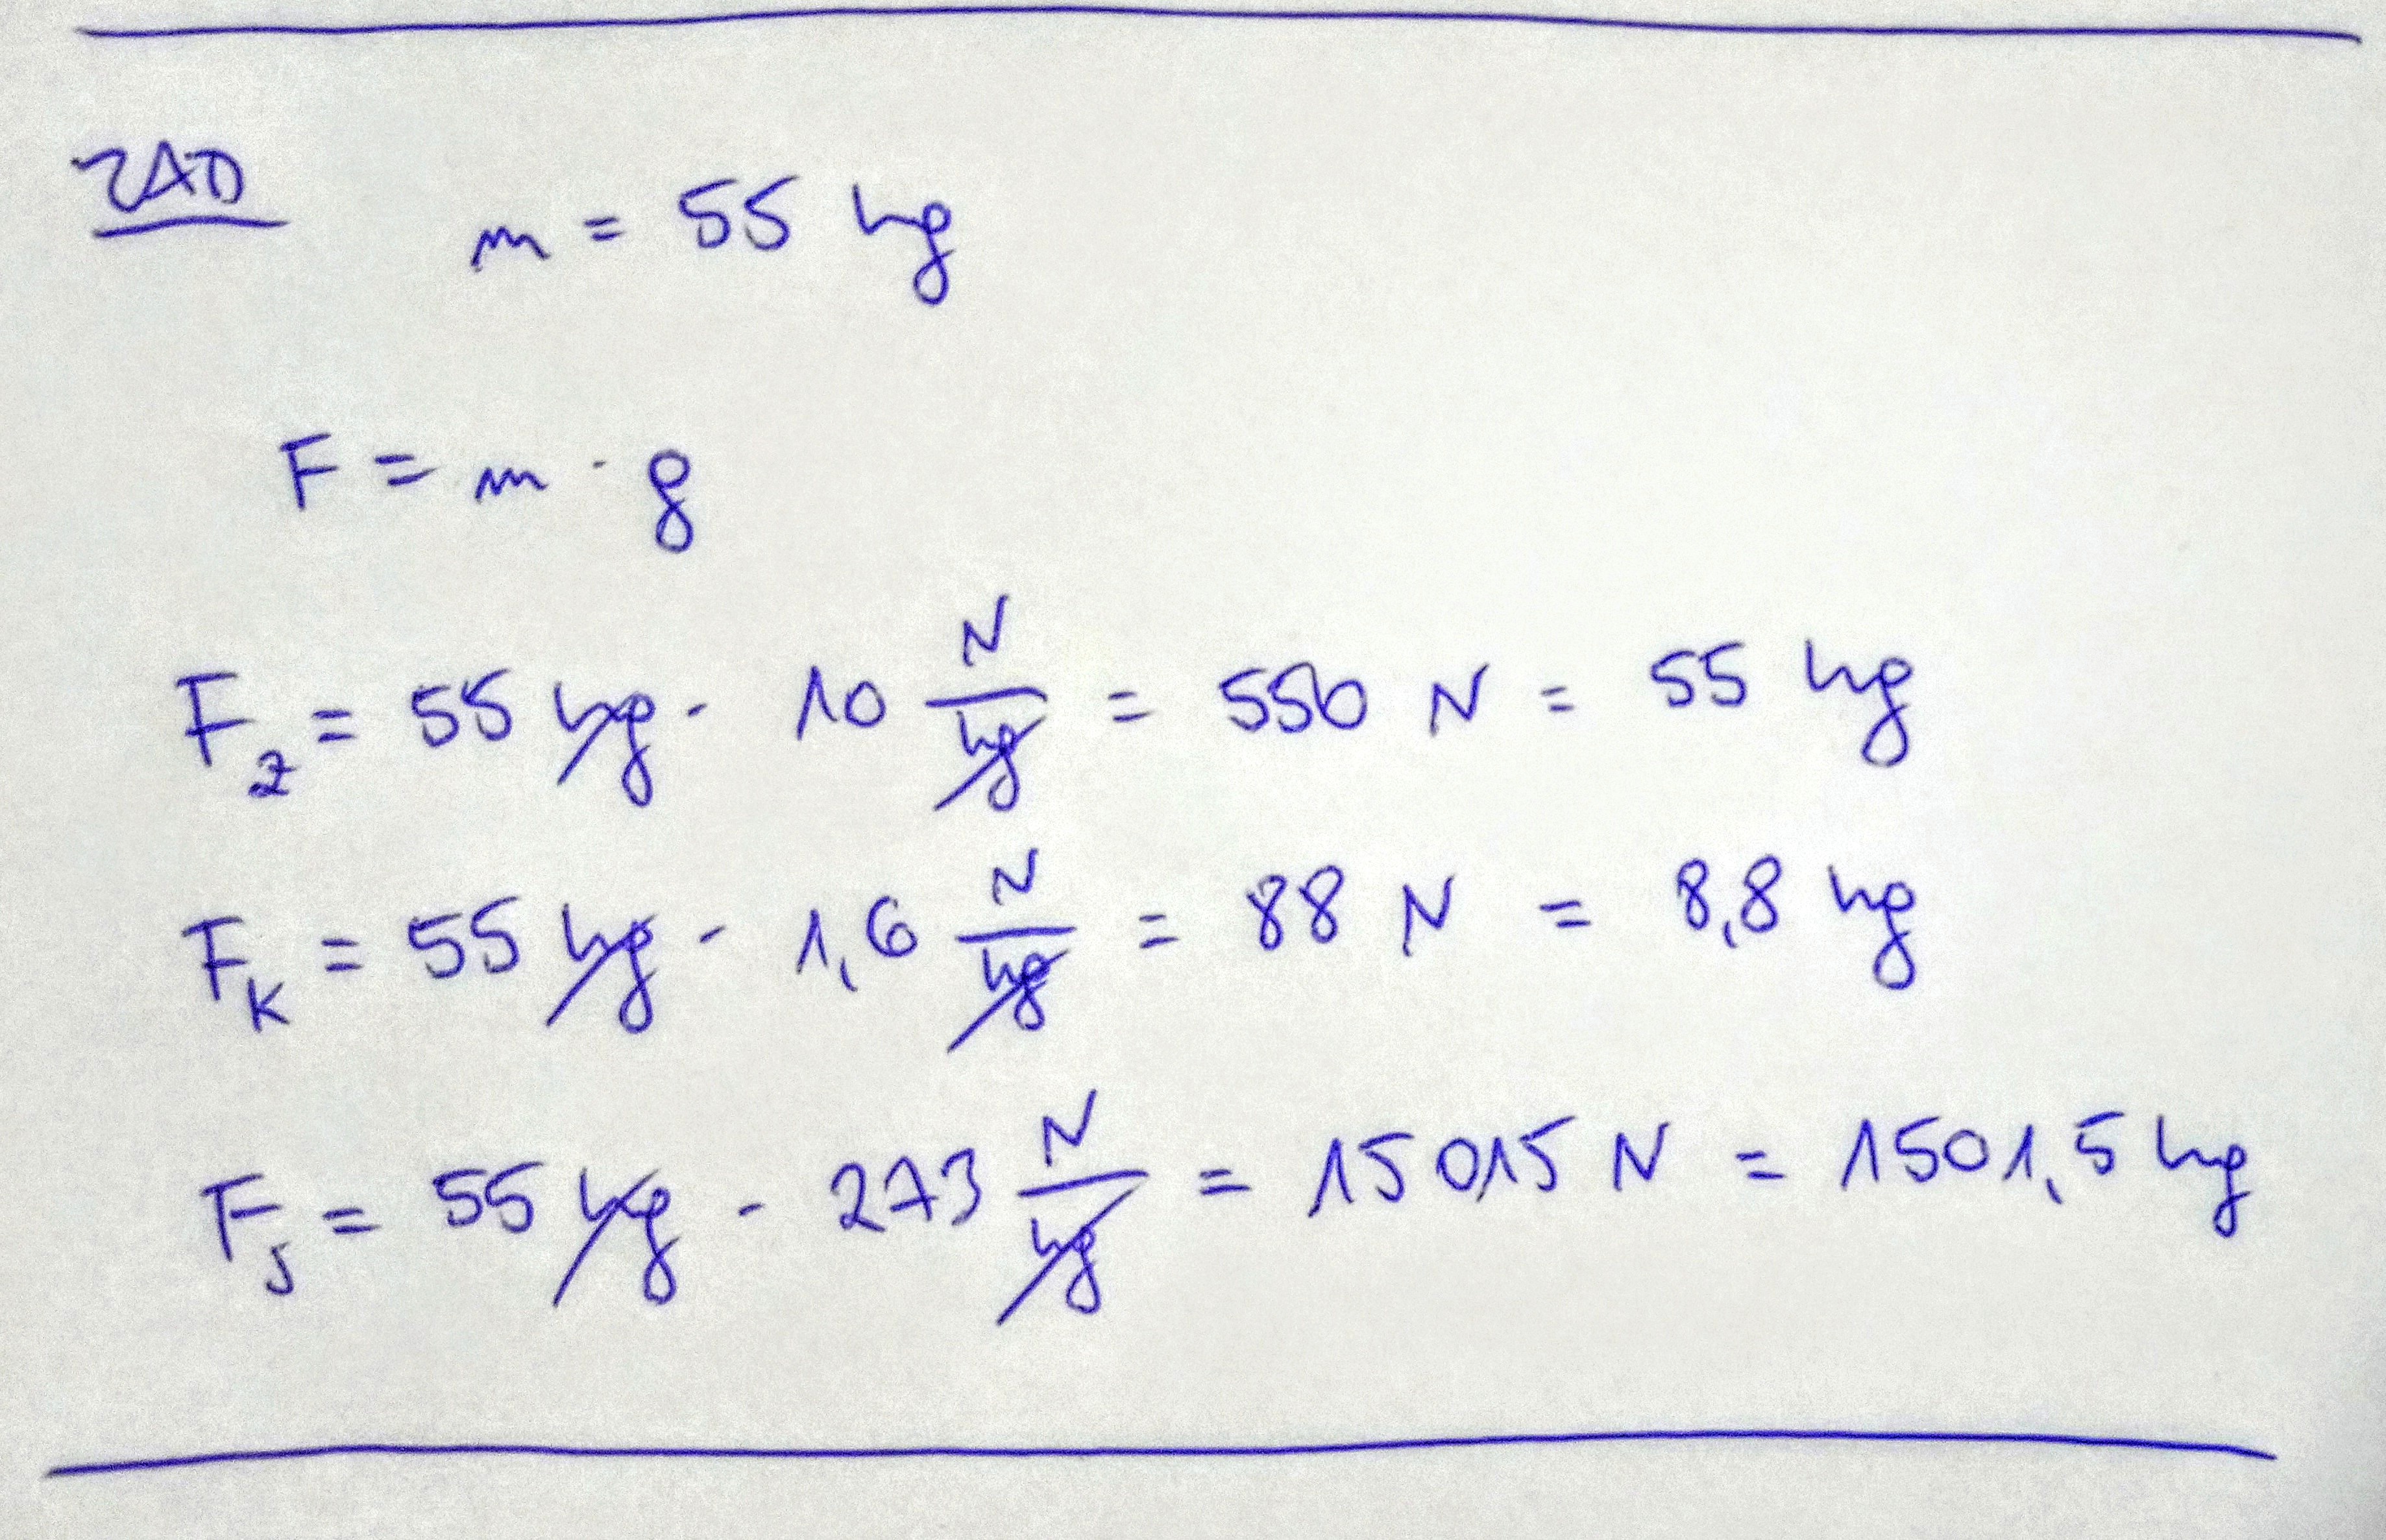 ZAD
m = 55 kg
F = m · g
F_z = 55 kg · 10 N/kg = 550 N = 55 kg
F_K = 55 kg · 1,6 N/kg = 88 N = 8,8 kg
F_J = 55 kg · 273 N/kg = 15015 N = 1501,5 kg